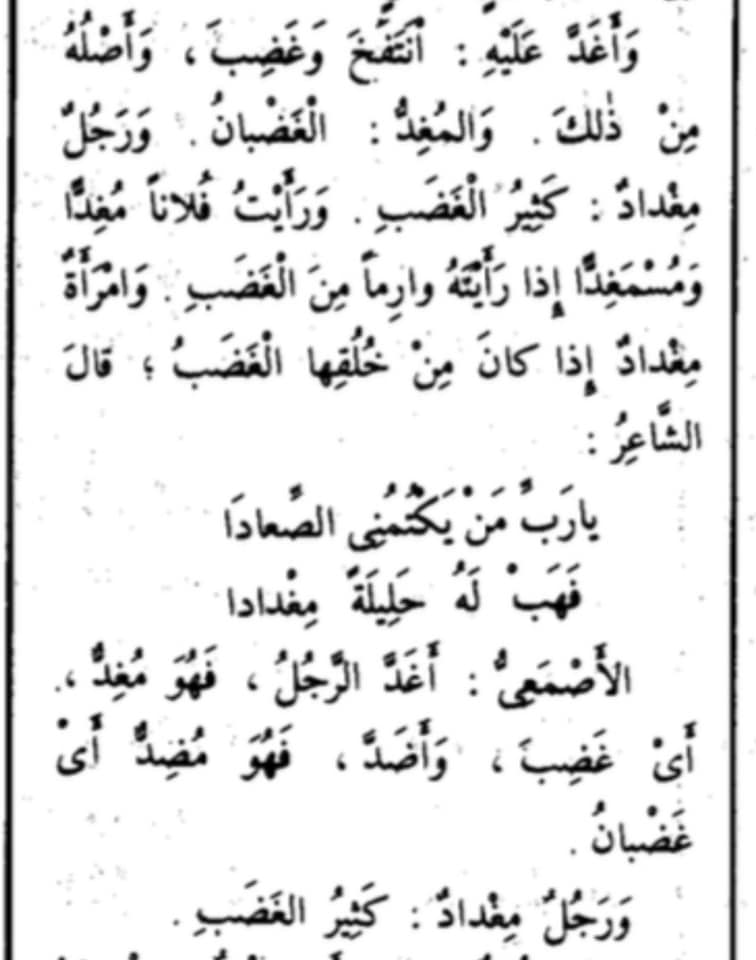 وَأَغَدَّ عَلَيْهِ : انْتَفَخَ وَغَضِبَ ، وَأَصْلُهُ
مِنْ ذٰلكَ . وَالمُغِدُّ : الْغَضْبانُ . وَرَجُلٌ
مِغْدادٌ : كَثِيرُ الْغَضَبِ . وَرَأَيْتُ فُلاناً مُغِدًّا
وَمُسْمَغِدًّا إِذا رَأَيْتَهُ وارِماً مِنَ الْغَضَبِ . وَامْرَأَةٌ
مِغْدادٌ إِذا كانَ مِنْ خُلُقِها الْغَضَبُ ؛ قالَ
الشَّاعِرُ :
يارَبِّ مَنْ يَكْتُمُنِى الصِّعادَا
فَهَبْ لَهُ حَلِيلَةً مِغْدادا
الأَصْمَعِىُّ : أَغَدَّ الرَّجُلُ ، فَهُوَ مُغِدٌّ ،
أَىْ غَضِبَ ، وَأَضَدَّ ، فَهُوَ مُضِدٌّ أَىْ
غَضْبانُ .
وَرَجُلٌ مِغْدادٌ : كَثِيرُ الغَضَبِ .